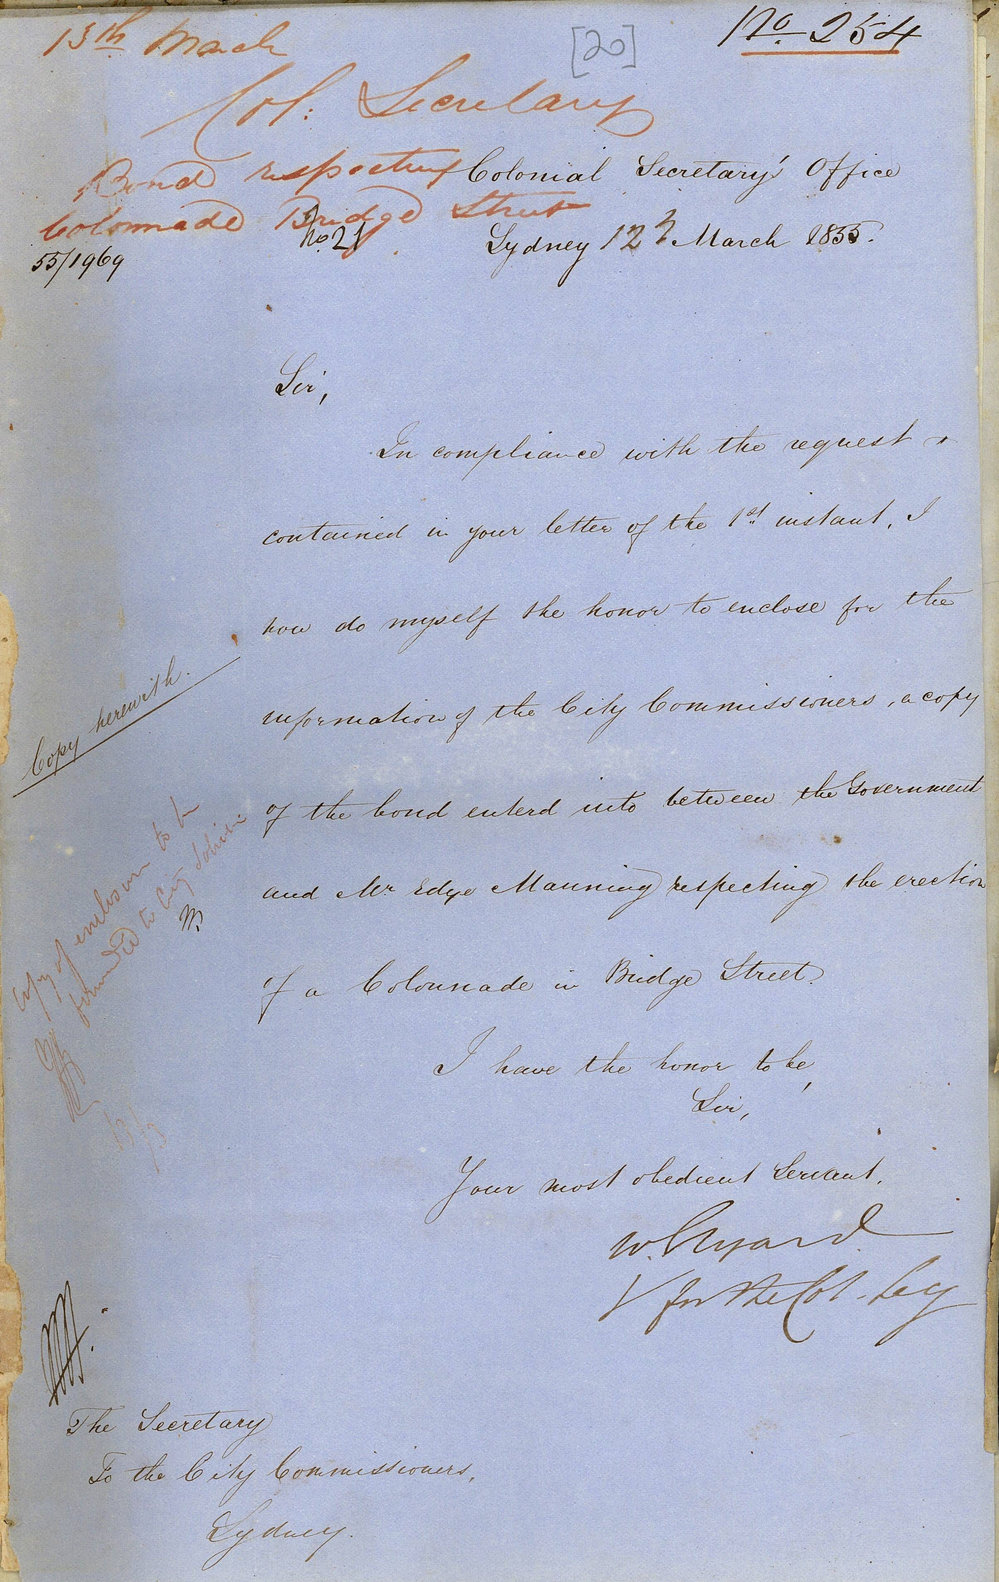 13th March
[20]
No. 254
Col: Secretary
Bond respecting
Colonnade Bridge Street
Colonial Secretary's Office
No 21
55/1969
Sydney 12th March 1855.
Sir,
In compliance with the request
contained in your letter of the 1st instant, I
now do myself the honor to enclose for the
information of the City Commissioners, a copy
Copy herewith.
of the bond enterd into between the Government
and Mr Edye Manning respecting the erection
of a Colonnade in Bridge Street.
Copy of enclosure to be
forwarded to City
13/3
I have the honor to be,
Sir,
Your most obedient Servant,
W. Elyard
for the Col. Secy
The Secretary
To the City Commissioners,
Sydney.